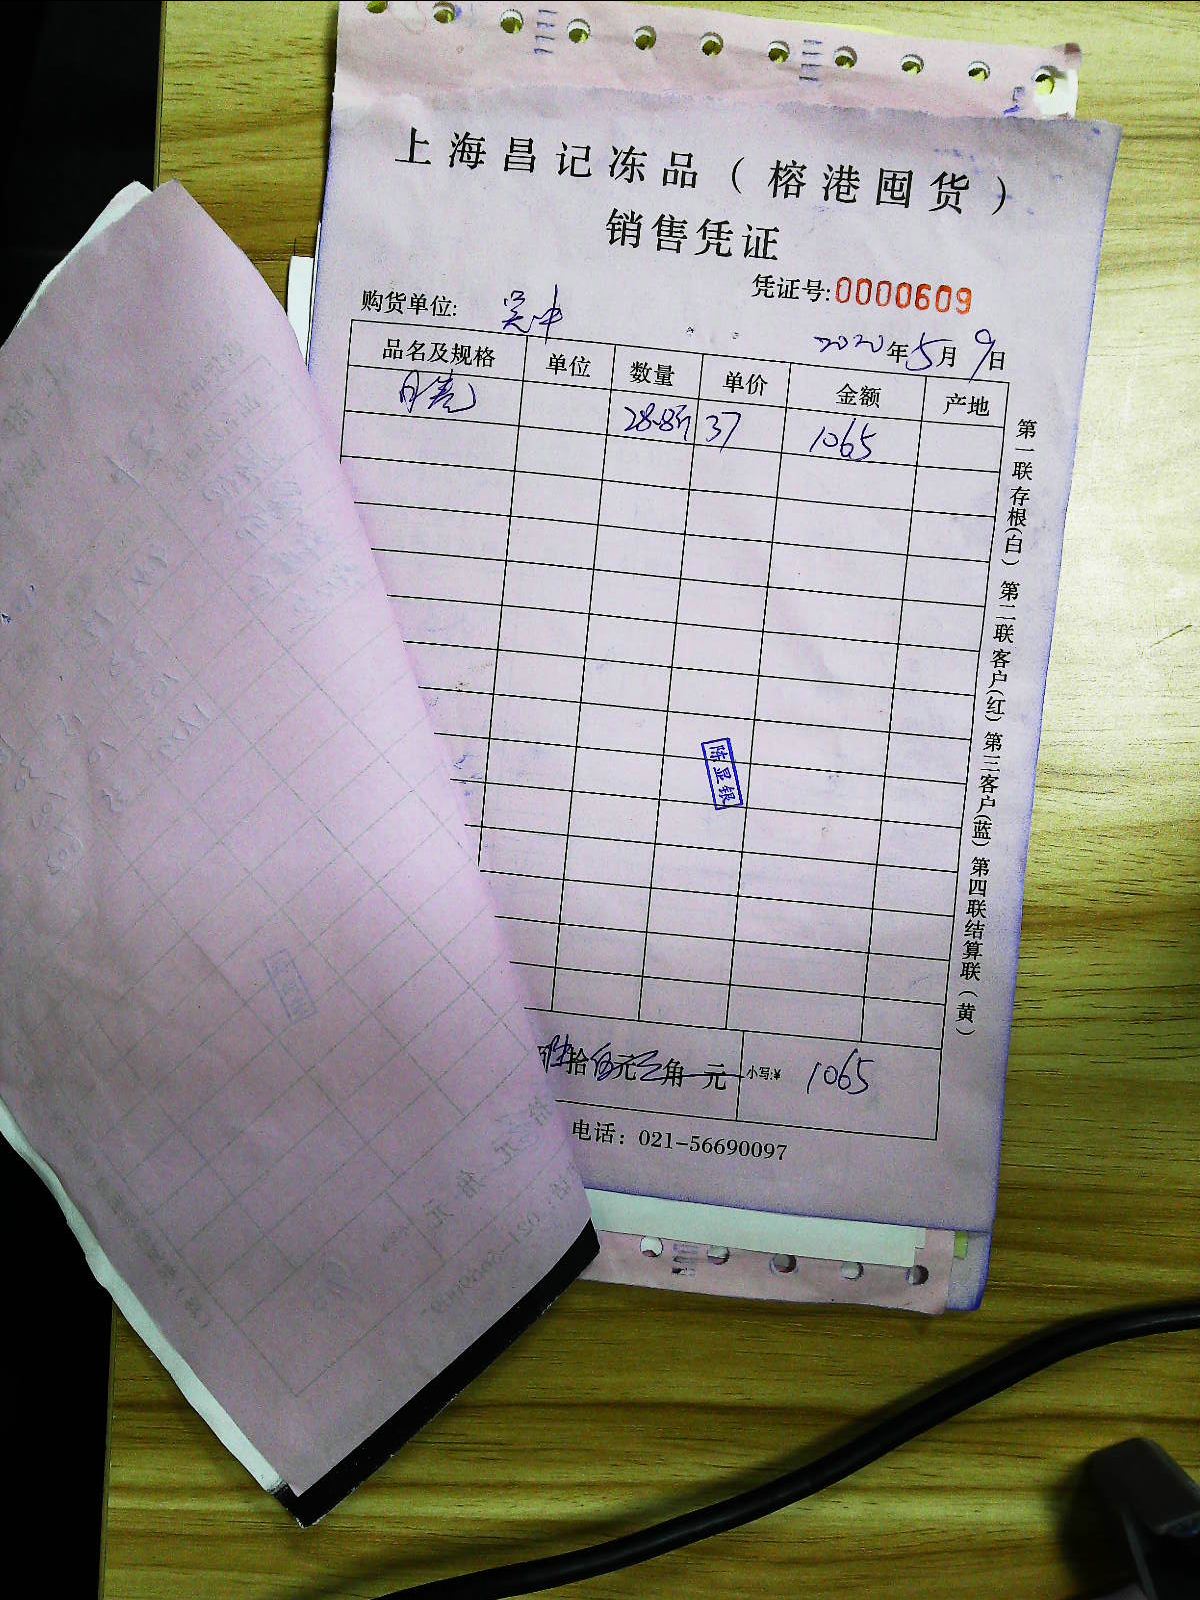 上海昌记冻品（榕港囤货）
销售凭证
凭证号:0000609
购货单位: 吴中
2020年5月9日
品名及规格 单位 数量 单价 金额 产地
28.8斤 37 1065
第一联存根(白) 第二联客户(红) 第三客户(蓝) 第四联结算联(黄)
陈显银
拾伍元 角 元 小写:¥ 1065
电话: 021-56690097